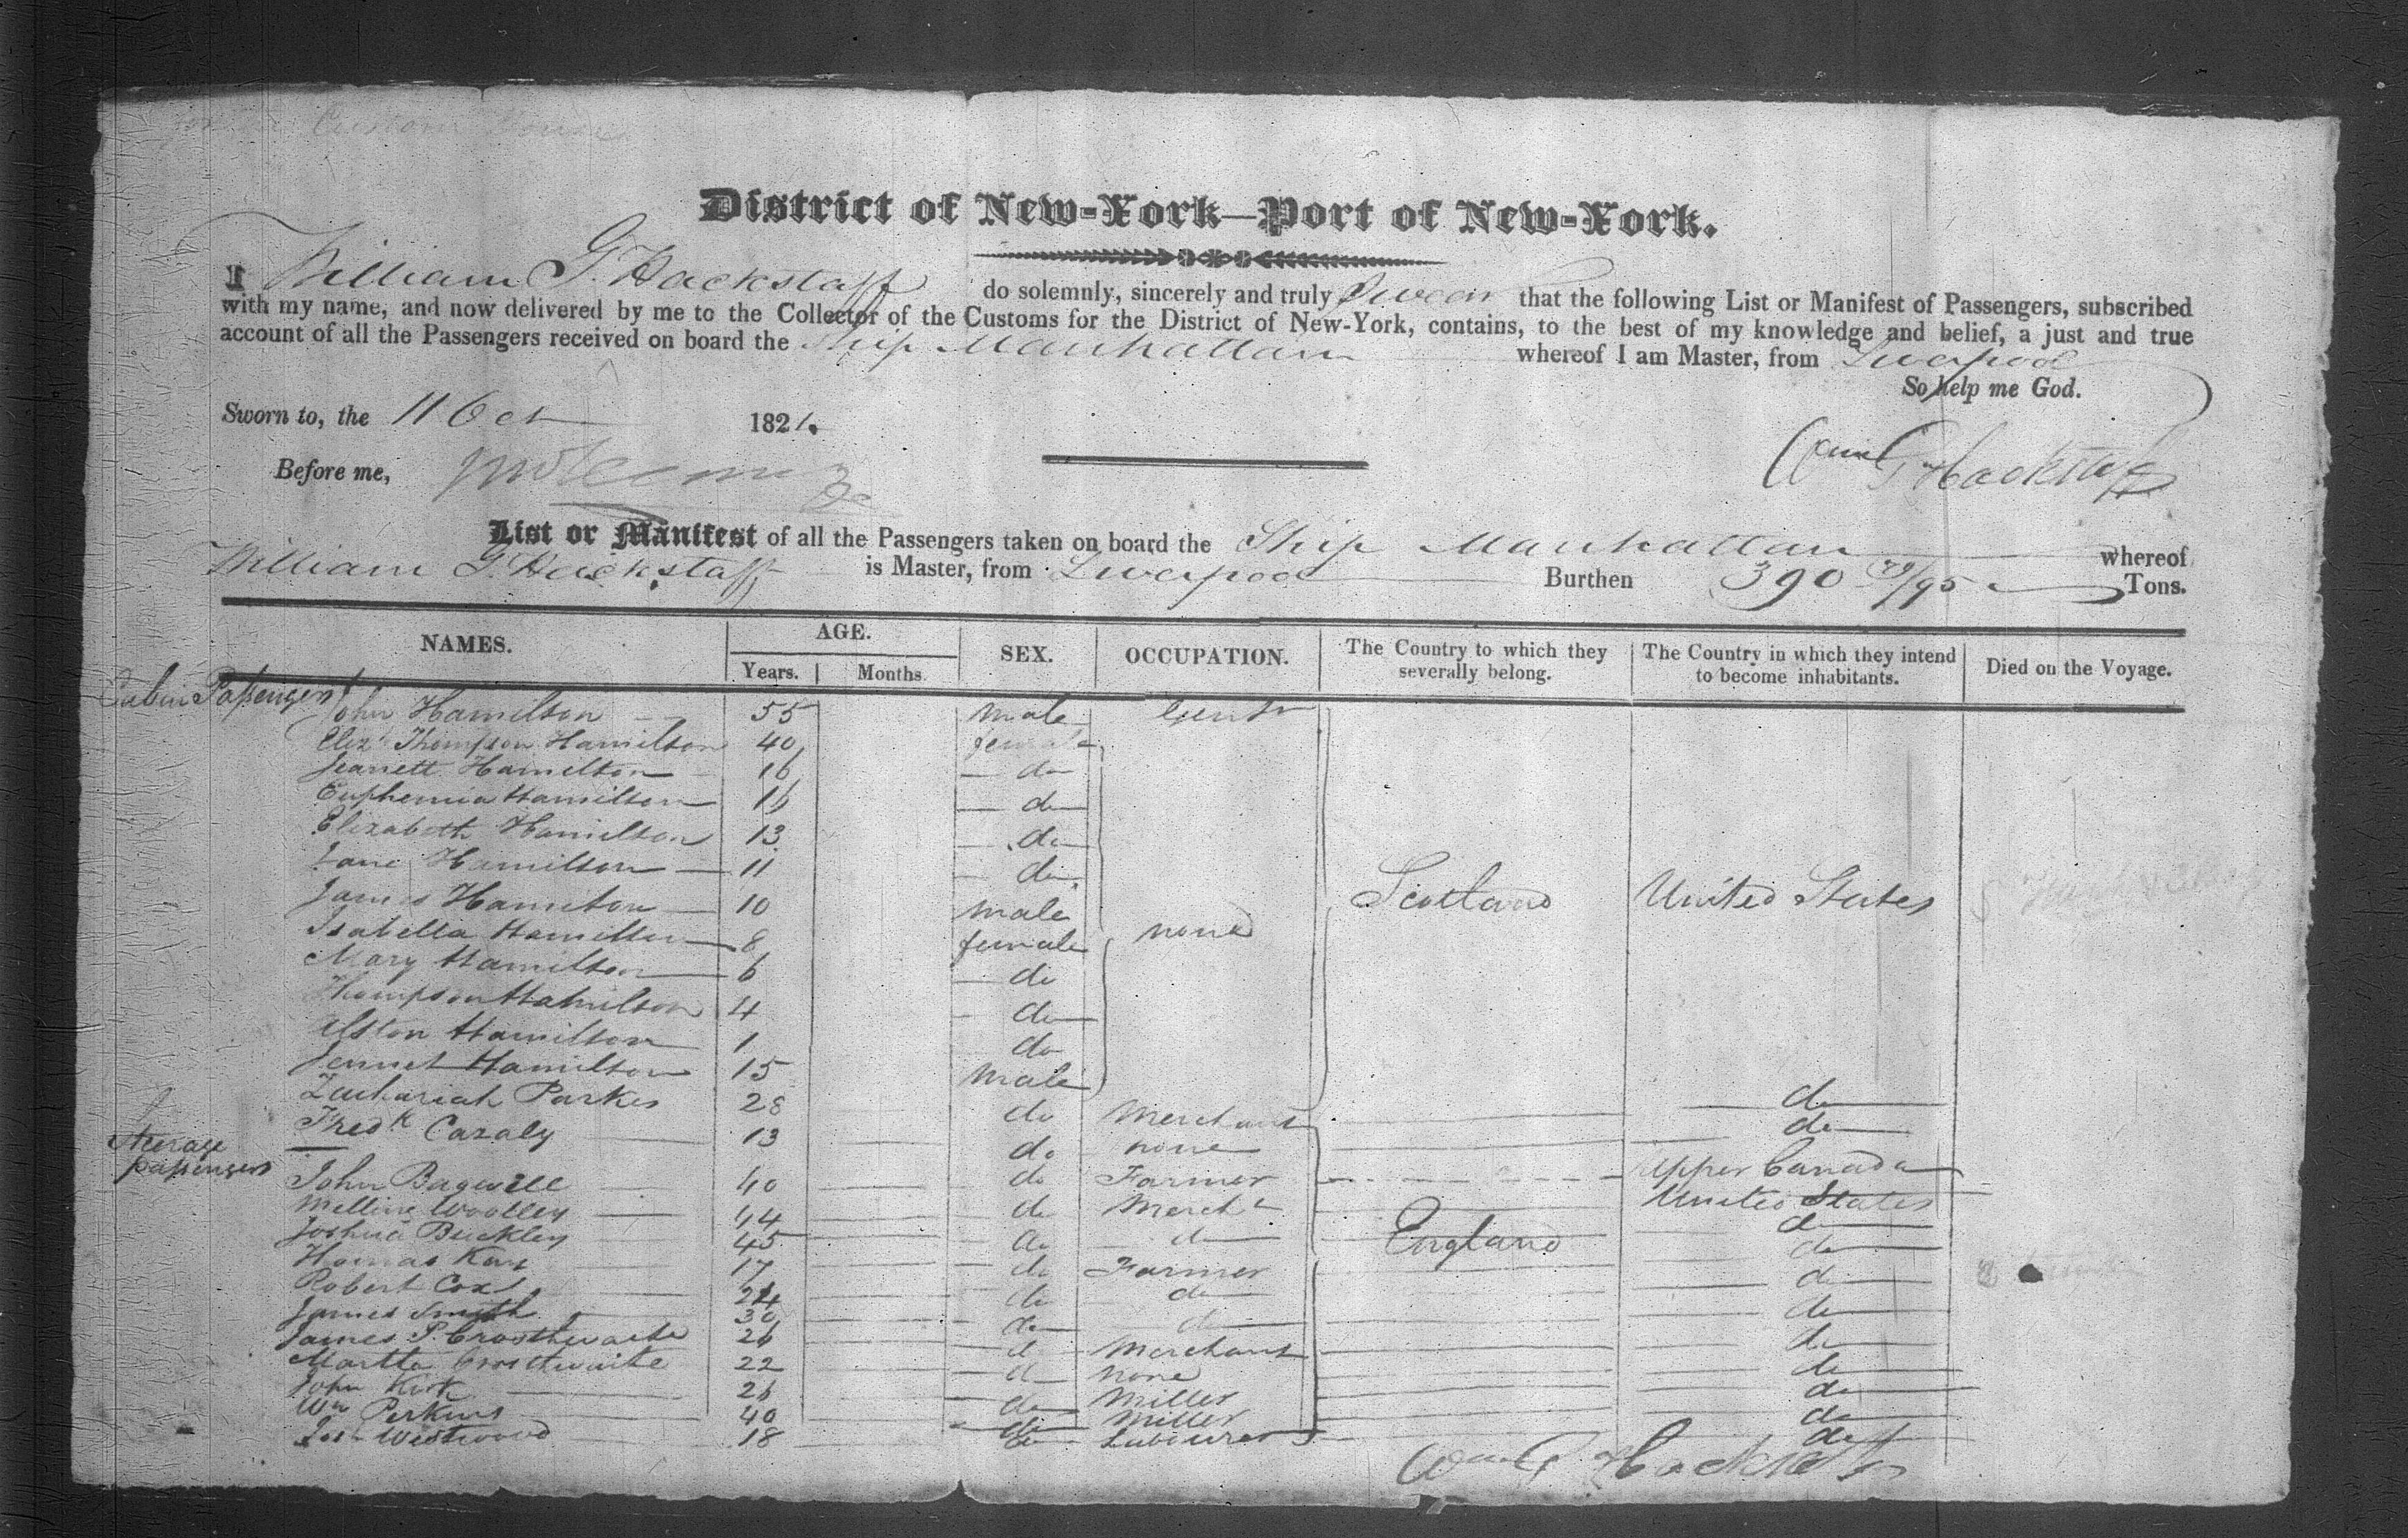 Custom House
District of New-York—Port of New-York.
I William G. Hackstaff do solemnly, sincerely and truly Swear that the following List or Manifest of Passengers, subscribed
with my name, and now delivered by me to the Collector of the Customs for the District of New-York, contains, to the best of my knowledge and belief, a just and true
account of all the Passengers received on board the Ship Manhattan whereof I am Master, from Liverpool
So help me God.
Sworn to, the 11 Oct 1821.
Before me,
Wm G Hackstaff
List or Manifest of all the Passengers taken on board the Ship Manhattan whereof
William G. Hackstaff is Master, from Liverpool Burthen 390 79/95 Tons.
NAMES. AGE. Years. Months. SEX. OCCUPATION. The Country to which they severally belong. The Country in which they intend to become inhabitants. Died on the Voyage.
Cabin Passengers
John Hamilton 55 male Gentn
Elizh Thompson Hamilton 40 female
Jeanett Hamilton 16 do
Euphemia Hamilton 16 do
Elizabeth Hamilton 13 do
Jane Hamilton 11 do
James Hamilton 10 male Scotland United States
Isabella Hamilton 8 female none
Mary Hamilton 6 do
Thompson Hamilton 4 do
Alston Hamilton 1 do
Jennet Hamilton 15 Male
Zachariah Parkes 28 do Merchant do
Fredk Cazaly 13 do none do
Steerage passengers
John Bagwell 40 do Farmer Upper Canada
Melling Woolley 44 do Mercht United States
Joshua Buckley 45 do do England do
Thomas Kay 17 do Farmer do
Robert Cox 24 do do do
James Smith 30 do do do
James P. Crosthwaite 26 d Merchant do
Martha Crosthwaite 22 d none do
John Kirk 26 do Miller do
Wm Perkins 40 do Miller do
Josh Westwood 18 do Labourer do
Wm G. Hackstaff